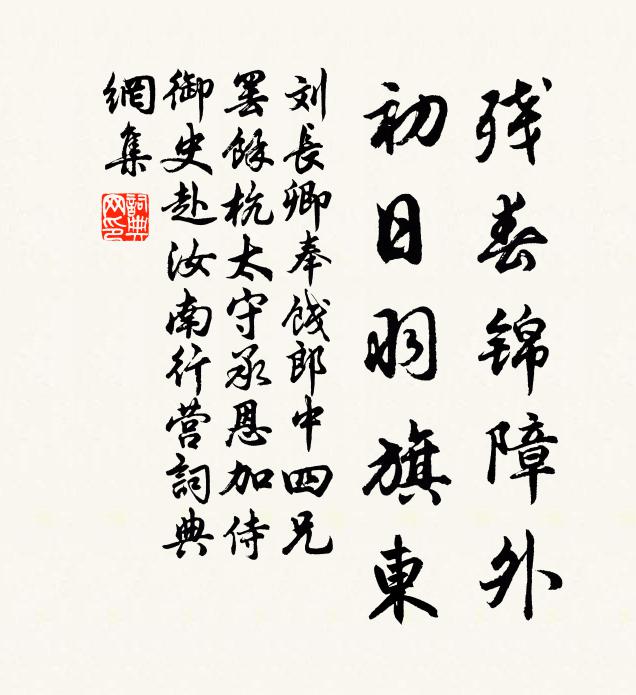 残春锦障外
初日羽旗東
刘長卿奉餞郎中四兄
罢餘杭太守承恩加侍
御史赴汝南行营詞典
網集
詞典网印